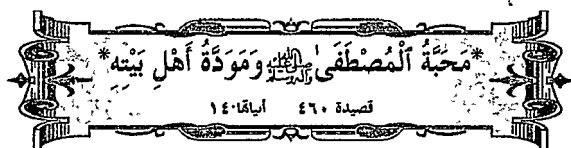 *مَحَبَّةُ ٱلْمُصْطَفَىٰ ﷺ وَمَوَدَّةُ أَهْلِ بَيْتِهِ*
قصيدة ٤٦٠ أبياتها ١٤٠